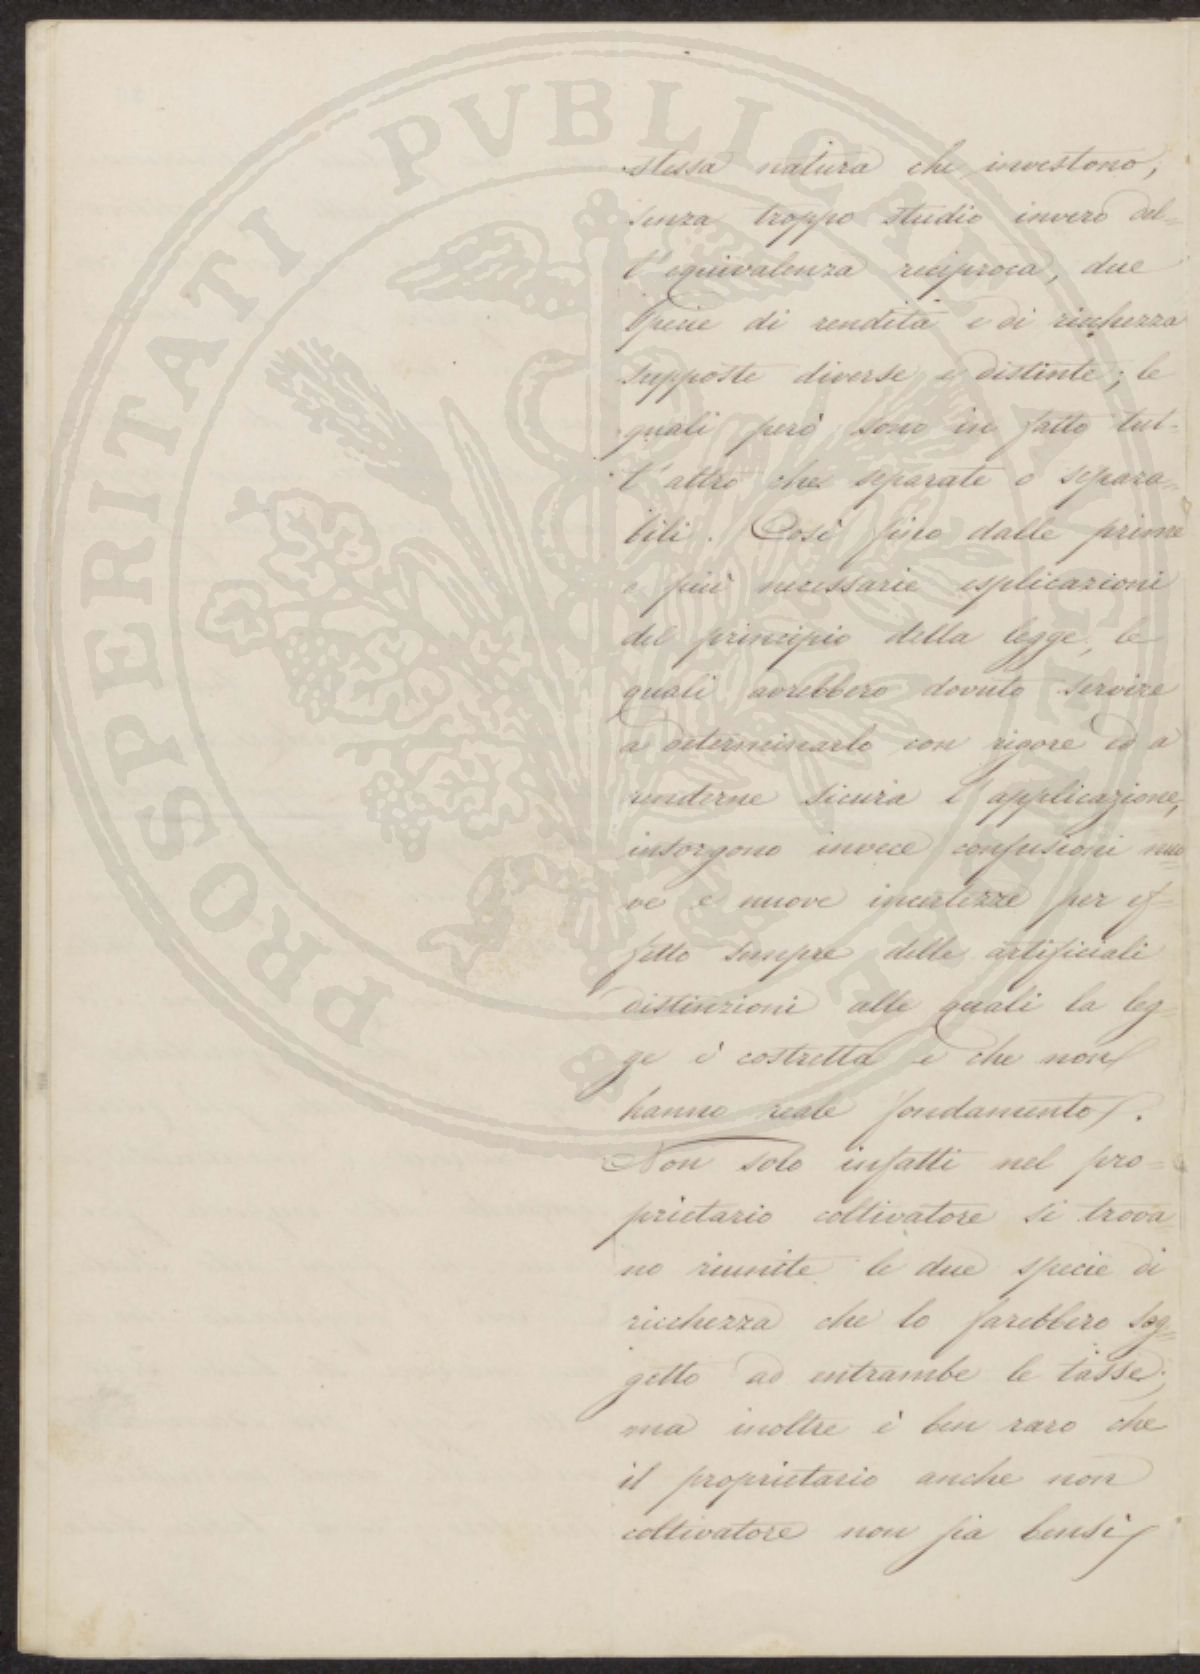 PROSPERITATI PVBLICAE AVGENDAE
stessa natura che investono,
senza troppo studio invero del=
l'equivalenza reciproca, due
specie di rendita e di ricchezza
supposte diverse e distinte; le
quali però sono in fatto tut-
t'altro che separate o separa=
bili. Così fino dalle prime
e più necessarie esplicazioni
del principio della legge, le
quali avrebbero dovuto servire
a determinarlo con rigore ed a
renderne sicura l'applicazione,
insorgono invece confusioni nuo=
ve e nuove incertezze per ef=
fetto sempre delle artificiali
distinzioni alle quali la leg=
ge è costretta e che non
hanno reale fondamento.
Non solo infatti nel pro=
prietario coltivatore si trova=
no riunite le due specie di
ricchezza che lo farebbero sog=
getto ad entrambe le tasse;
ma inoltre è ben raro che
il proprietario anche non
coltivatore non sia bensì